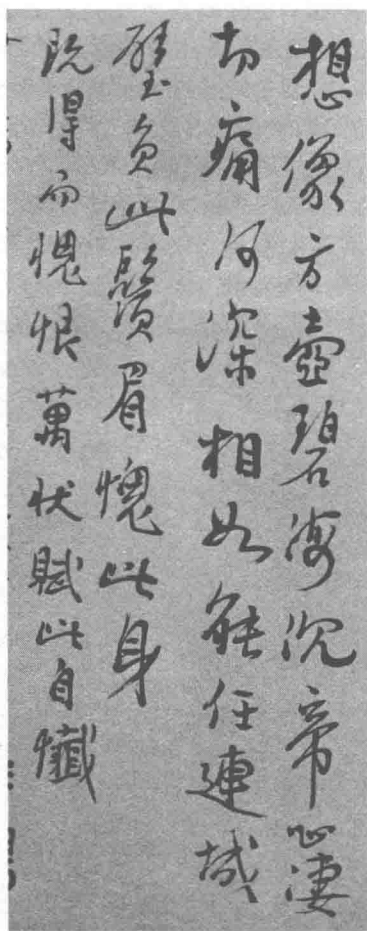 想像方壺碧海沉帝心凄
切痛何深相如能任連城
璧負此鬚眉愧此身
既得而愧恨萬狀賦此自懺